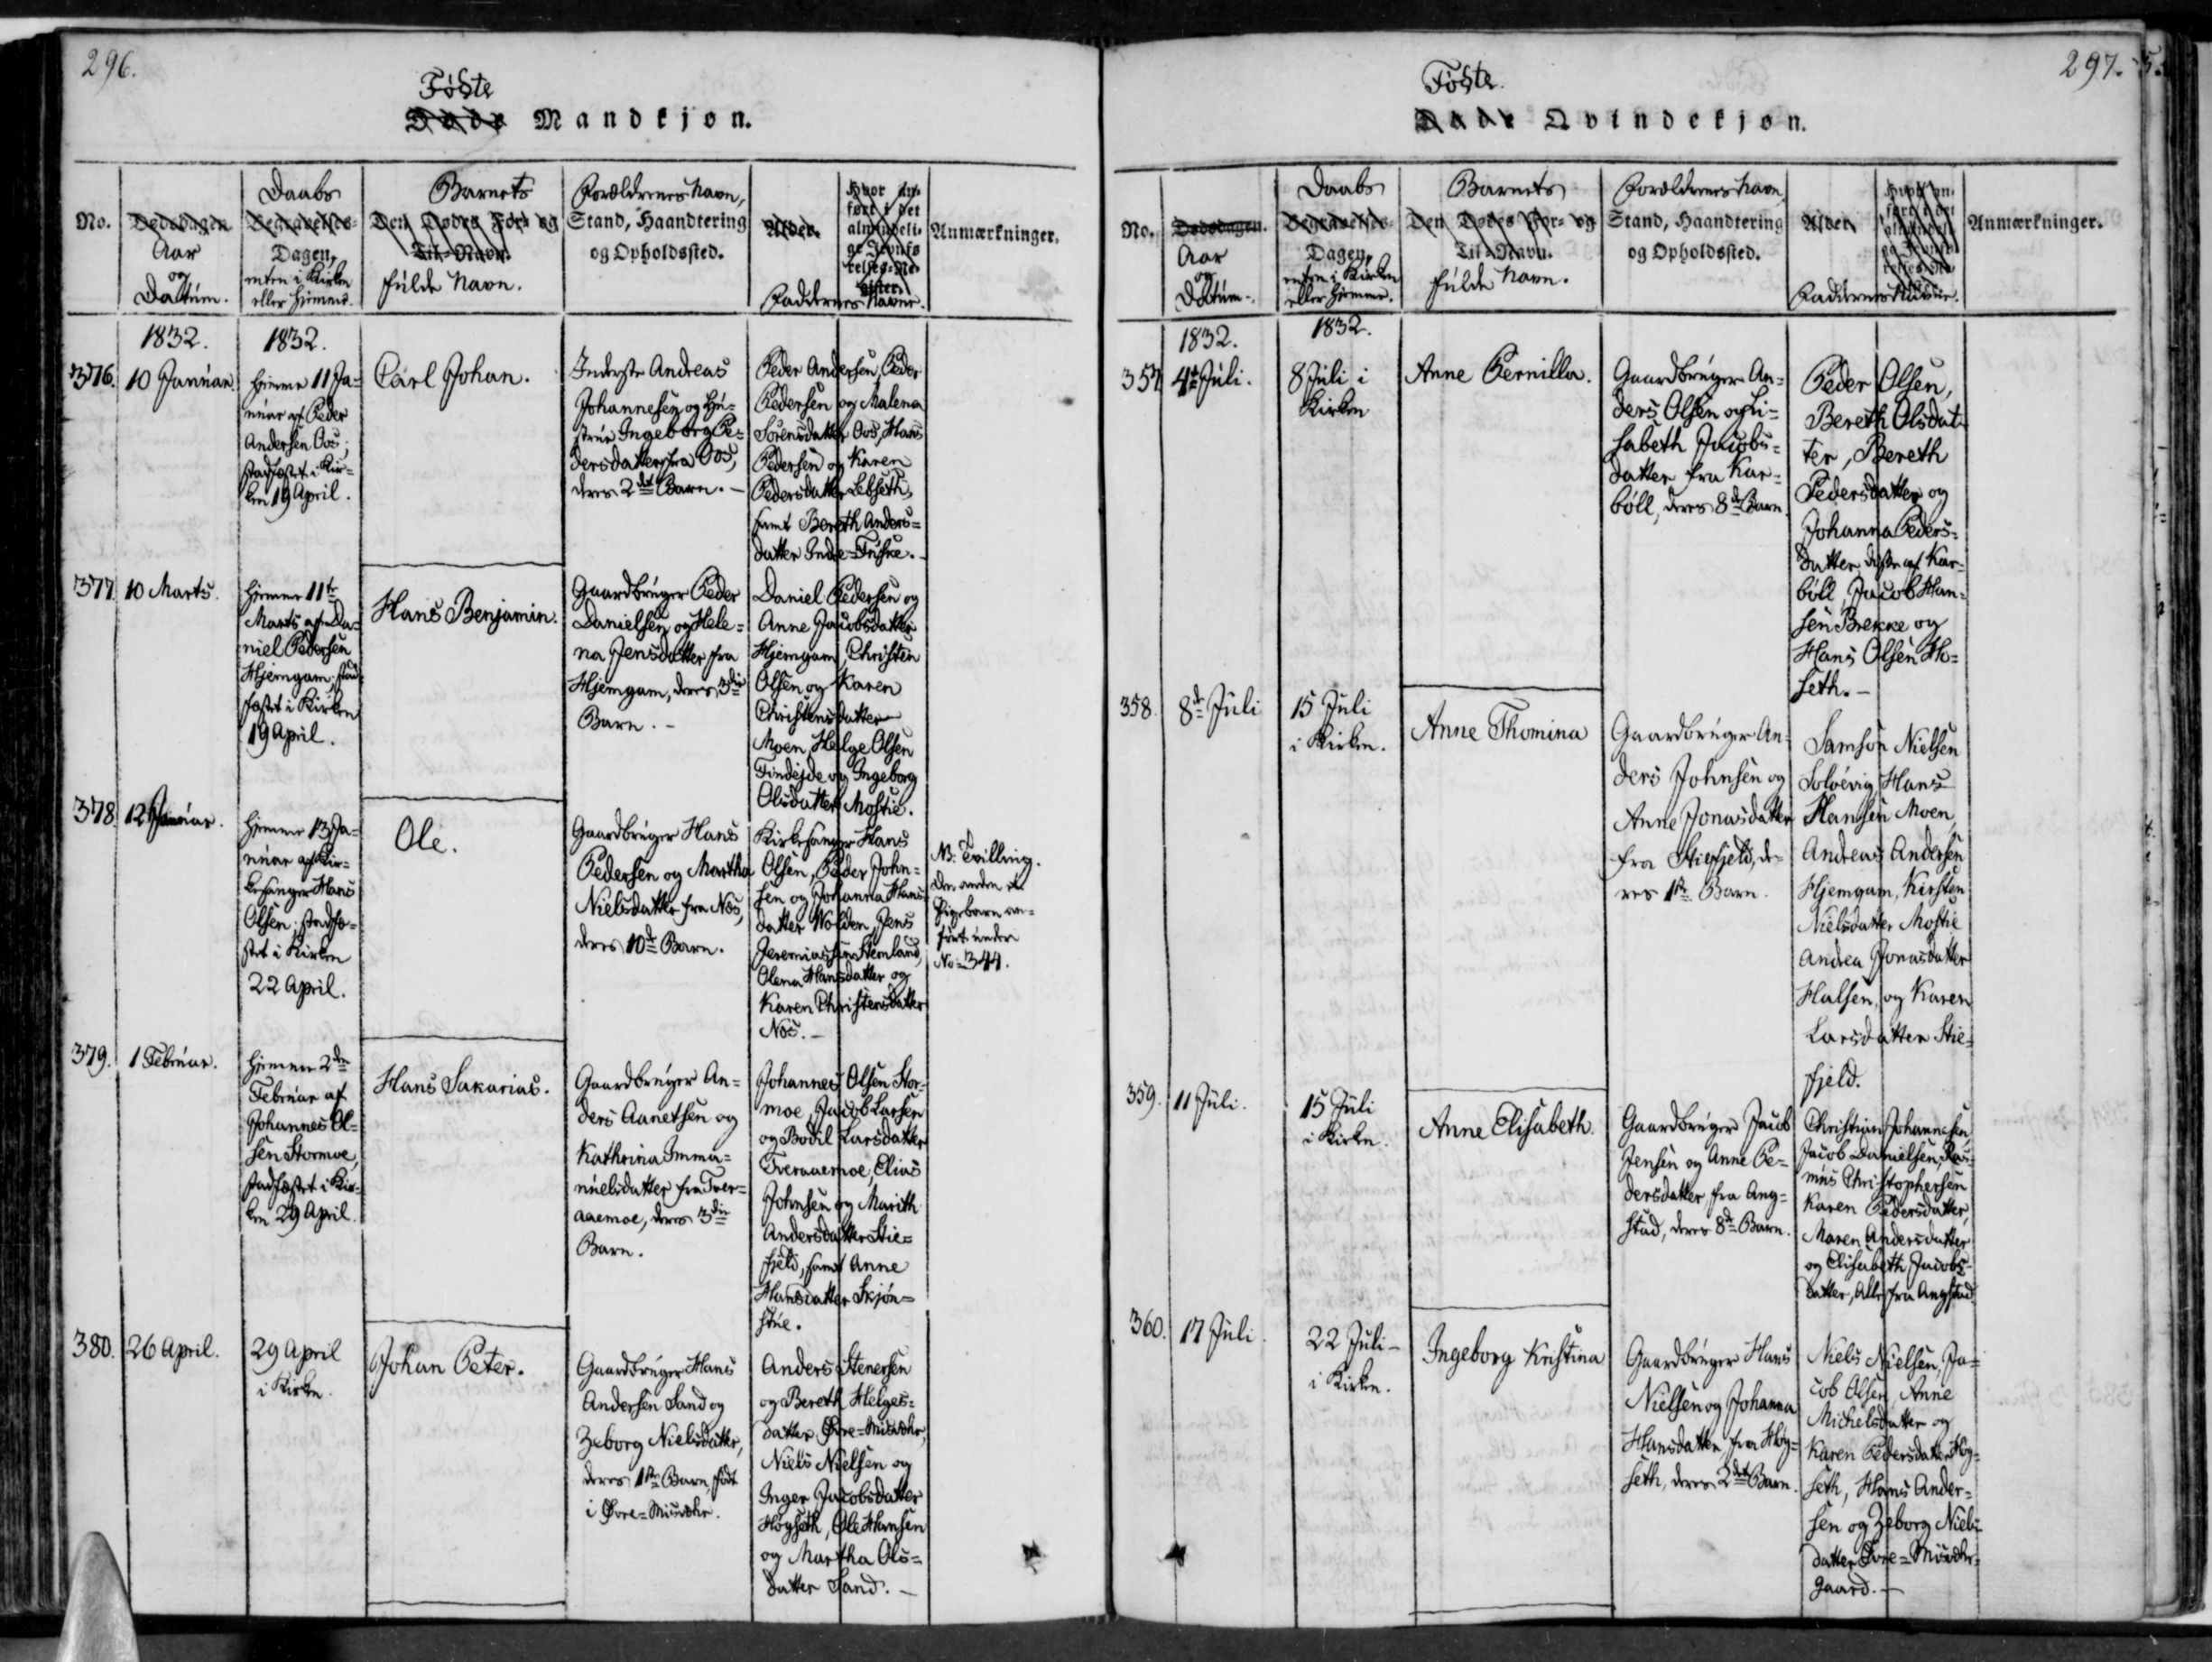 296.
Føste
Døde Mandkjøn.
No.
Dødsdagen.
Aar
og
Datum.
Daabs
Begravelses-
Dagen,
enten i Kirken
eller Hiemme.
Barnets
Den Dødes For- og
Til-Navn.
fulde Navn.
Forældrenes Navn,
Stand, Haandtering
og Opholdssted.
Alder.
Hvor an-
ført i det
almindeli-
ge Jevnfø-
relses-Re-
gister.
Faddernes Navne.
Anmærkninger.
1832.
1832.
376.
10 Januar.
hiemme 11 Ja-
nuar af Peder
Andersen Oos;
stadfæstet i Kir-
ken 19 April.
Carl Johan.
Inderste Andreas
Johannesen og Hu-
strue Ingeborg Pe-
dersdatter fra Oos,
deres 2det Barn. -
Peder Andersen, Peder
Pedersen og Malena
Sørensdatter Oos, Hans
Pedersen og Karen
Pedersdatter Lebseth,
samt Bereth Anders-
datter Indre-Tuske. -
377.
10 Marts.
hiemme 11te
Marts af Da-
niel Pedersen
Hjemgam; stad-
fæstet i Kirken
19 April.
Hans Benjamin.
Gaardbruger Peder
Danielsen og Hele-
na Jensdatter fra
Hjemgam, deres 3die
Barn. -
Daniel Pedersen og
Anne Jacobsdatter
Hjemgam, Christen
Olsen og Karen
Christensdatter
Moen, Helge Olsen
Findejde og Ingeborg
Olsdatter Mostie.
378.
12 Januar.
hiemme 13 Ja-
nuar af Kir-
kesanger Hans
Olsen; stadfæ-
stet i Kirken
22 April.
Ole.
Gaardbruger Hans
Pedersen og Martha
Nielsdatter fra Nos,
deres 10de Barn.
Kirkesanger Hans
Olsen, Peder John-
sen og Johanna Hans-
datter Wolden, Jens
Jeremiassen Stemland,
Olena Hansdatter og
Karen Christensdatter
Nos. -
NB. Tvilling.
Den anden et
Pigebarn an-
ført under
No 344.
379.
1 Februar.
hiemme 2den
Februar af
Johannes Ol-
sen Stormoe,
stadfæstet i Kir-
ken 29 April.
Hans Sakarias.
Gaardbruger An-
ders Aanetsen og
Kathrina Imma-
nuelsdatter fra Tver-
aaemoe, deres 3die
Barn.
Johannes Olsen Stor-
moe, Jacob Larsen
og Bodil Larsdatter
Tveraaemoe, Elias
Johnsen og Marith
Andersdatter Stie-
fjeld, samt Anne
Hansdatter Skjøn-
stue.
380.
26 April.
29 April
i Kirken.
Johan Peter.
Gaardbruger Hans
Andersen Sand og
Zeborg Nielsdatter,
deres 1ste Barn, født
i Øvre-Misvær.
Anders Stenersen
og Bereth Helges-
datter Øvre-Misvær,
Niels Nielsen og
Inger Jacobsdatter
Høgseth, Ole Hansen
og Martha Ols-
datter Sand. -
297.
Føste.
Døde Qvindekjøn.
No.
Dødsdagen.
Aar
og
Datum.
Daabs
Begravelses-
Dagen,
enten i Kirken
eller Hiemme.
Barnets
Den Dødes For- og
Til-Navn.
fulde Navn.
Forældrenes Navn,
Stand, Haandtering
og Opholdssted.
Alder.
Hvor an-
ført i det
almindeli-
ge Jevnfø-
relses-Re-
Faddernes Navne.
Anmærkninger.
1832.
1832.
357.
4de Juli.
8 Juli i
Kirken
Anne Pernilla.
Gaardbruger An-
ders Olsen og Li-
sabeth Jacobs-
datter fra Kar-
bøll, deres 8de Barn.
Peder Olsen,
Bereth Olsdat-
ter, Bereth
Pedersdatter og
Johanna Peders-
datter disse af Kar-
bøll, Jacob Han-
sen Brekke og
Hans Olsen Ho-
seth. -
358.
8de Juli
15 Juli
i Kirken.
Anne Thomina
Gaardbruger An-
ders Johnsen og
Anne Jonasdatter
fra Stiefjeld, de-
res 1ste Barn.
Samson Nielsen
Soløevig, Hans
Hansen Moen,
Andreas Andersen
Hjemgam, Kirsten
Nielsdatter Mostie
Andrea Jonasdatter
Halsen, og Karen
Larsdatter Stie-
fjeld.
359.
11 Juli.
15 Juli
i Kirken.
Anne Elisabeth.
Gaardbruger Jacob
Jensen og Anne Pe-
dersdatter, fra Ang-
stad, deres 8de Barn.
Christian Johannesen,
Jacob Danielsen, Ras-
mus Christophersen
Karen Pedersdatter,
Maren Andersdatter
og Elisabeth Jacobs-
datter, Alle fra Angstad.
360.
17 Juli.
22 Juli -
i Kirken.
Ingeborg Kristina
Gaardbruger Hans
Nielsen og Johanna
Hansdatter fra Høg-
seth, deres 2det Barn.
Niels Nielsen, Ja-
cob Olsen, Anne
Michelsdatter og
Karen Pedersdatter Høg-
seth, Hans Ander-
sen og Zeborg Niels-
datter Øvre-Misvær-
gaard. -